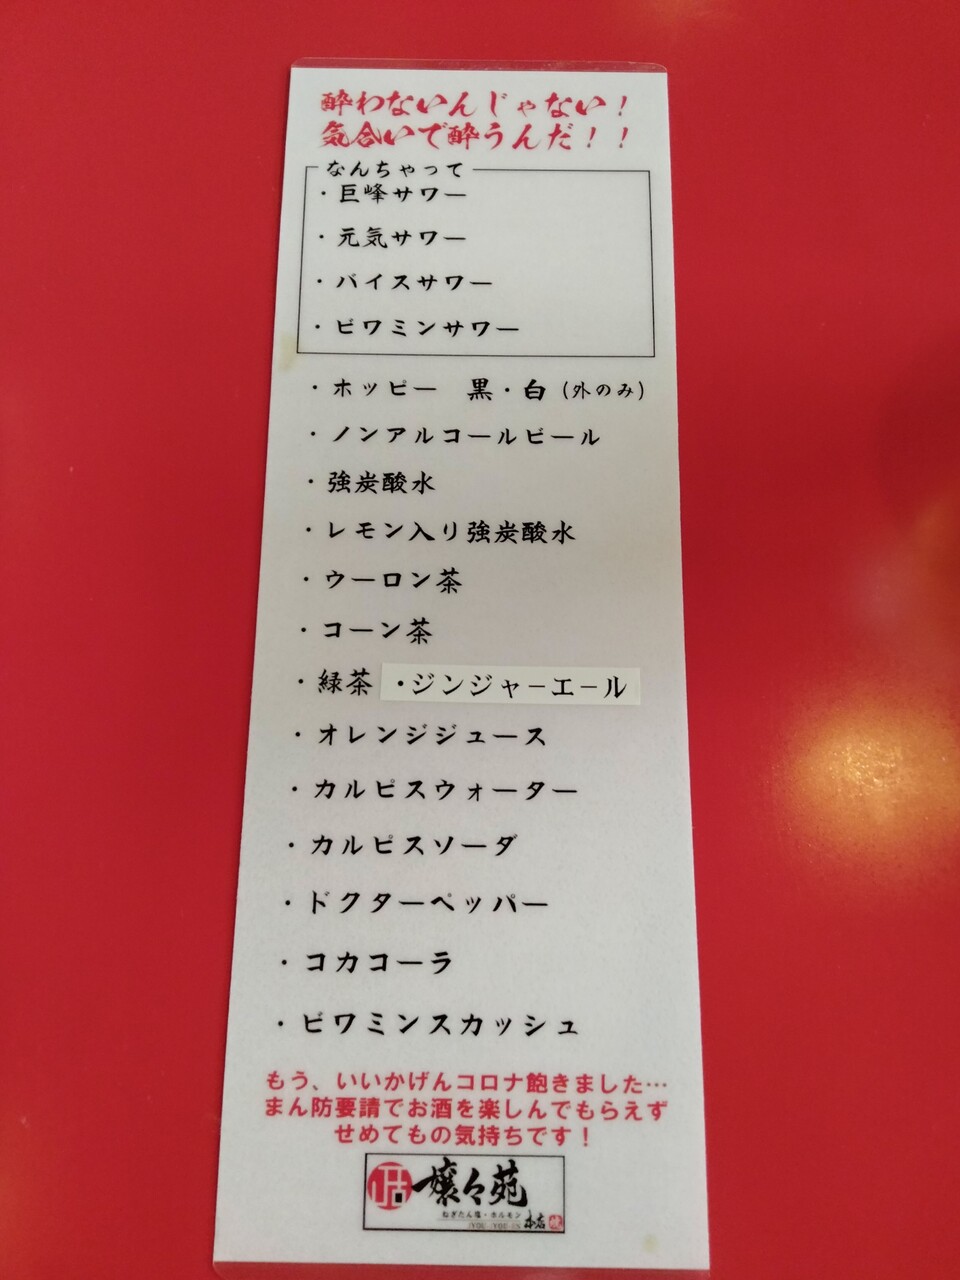 酔わないんじゃない！
気合いで酔うんだ！！
なんちゃって
・巨峰サワー
・元気サワー
・バイスサワー
・ビワミンサワー
・ホッピー　黒・白（外のみ）
・ノンアルコールビール
・強炭酸水
・レモン入り強炭酸水
・ウーロン茶
・コーン茶
・緑茶 ・ジンジャーエール
・オレンジジュース
・カルピスウォーター
・カルピスソーダ
・ドクターペッパー
・コカコーラ
・ビワミンスカッシュ
もう、いいかげんコロナ飽きました…
まん防要請でお酒を楽しんでもらえず
せめてもの気持ちです！
嬢々苑
ねぎたん塩・ホルモン
本店